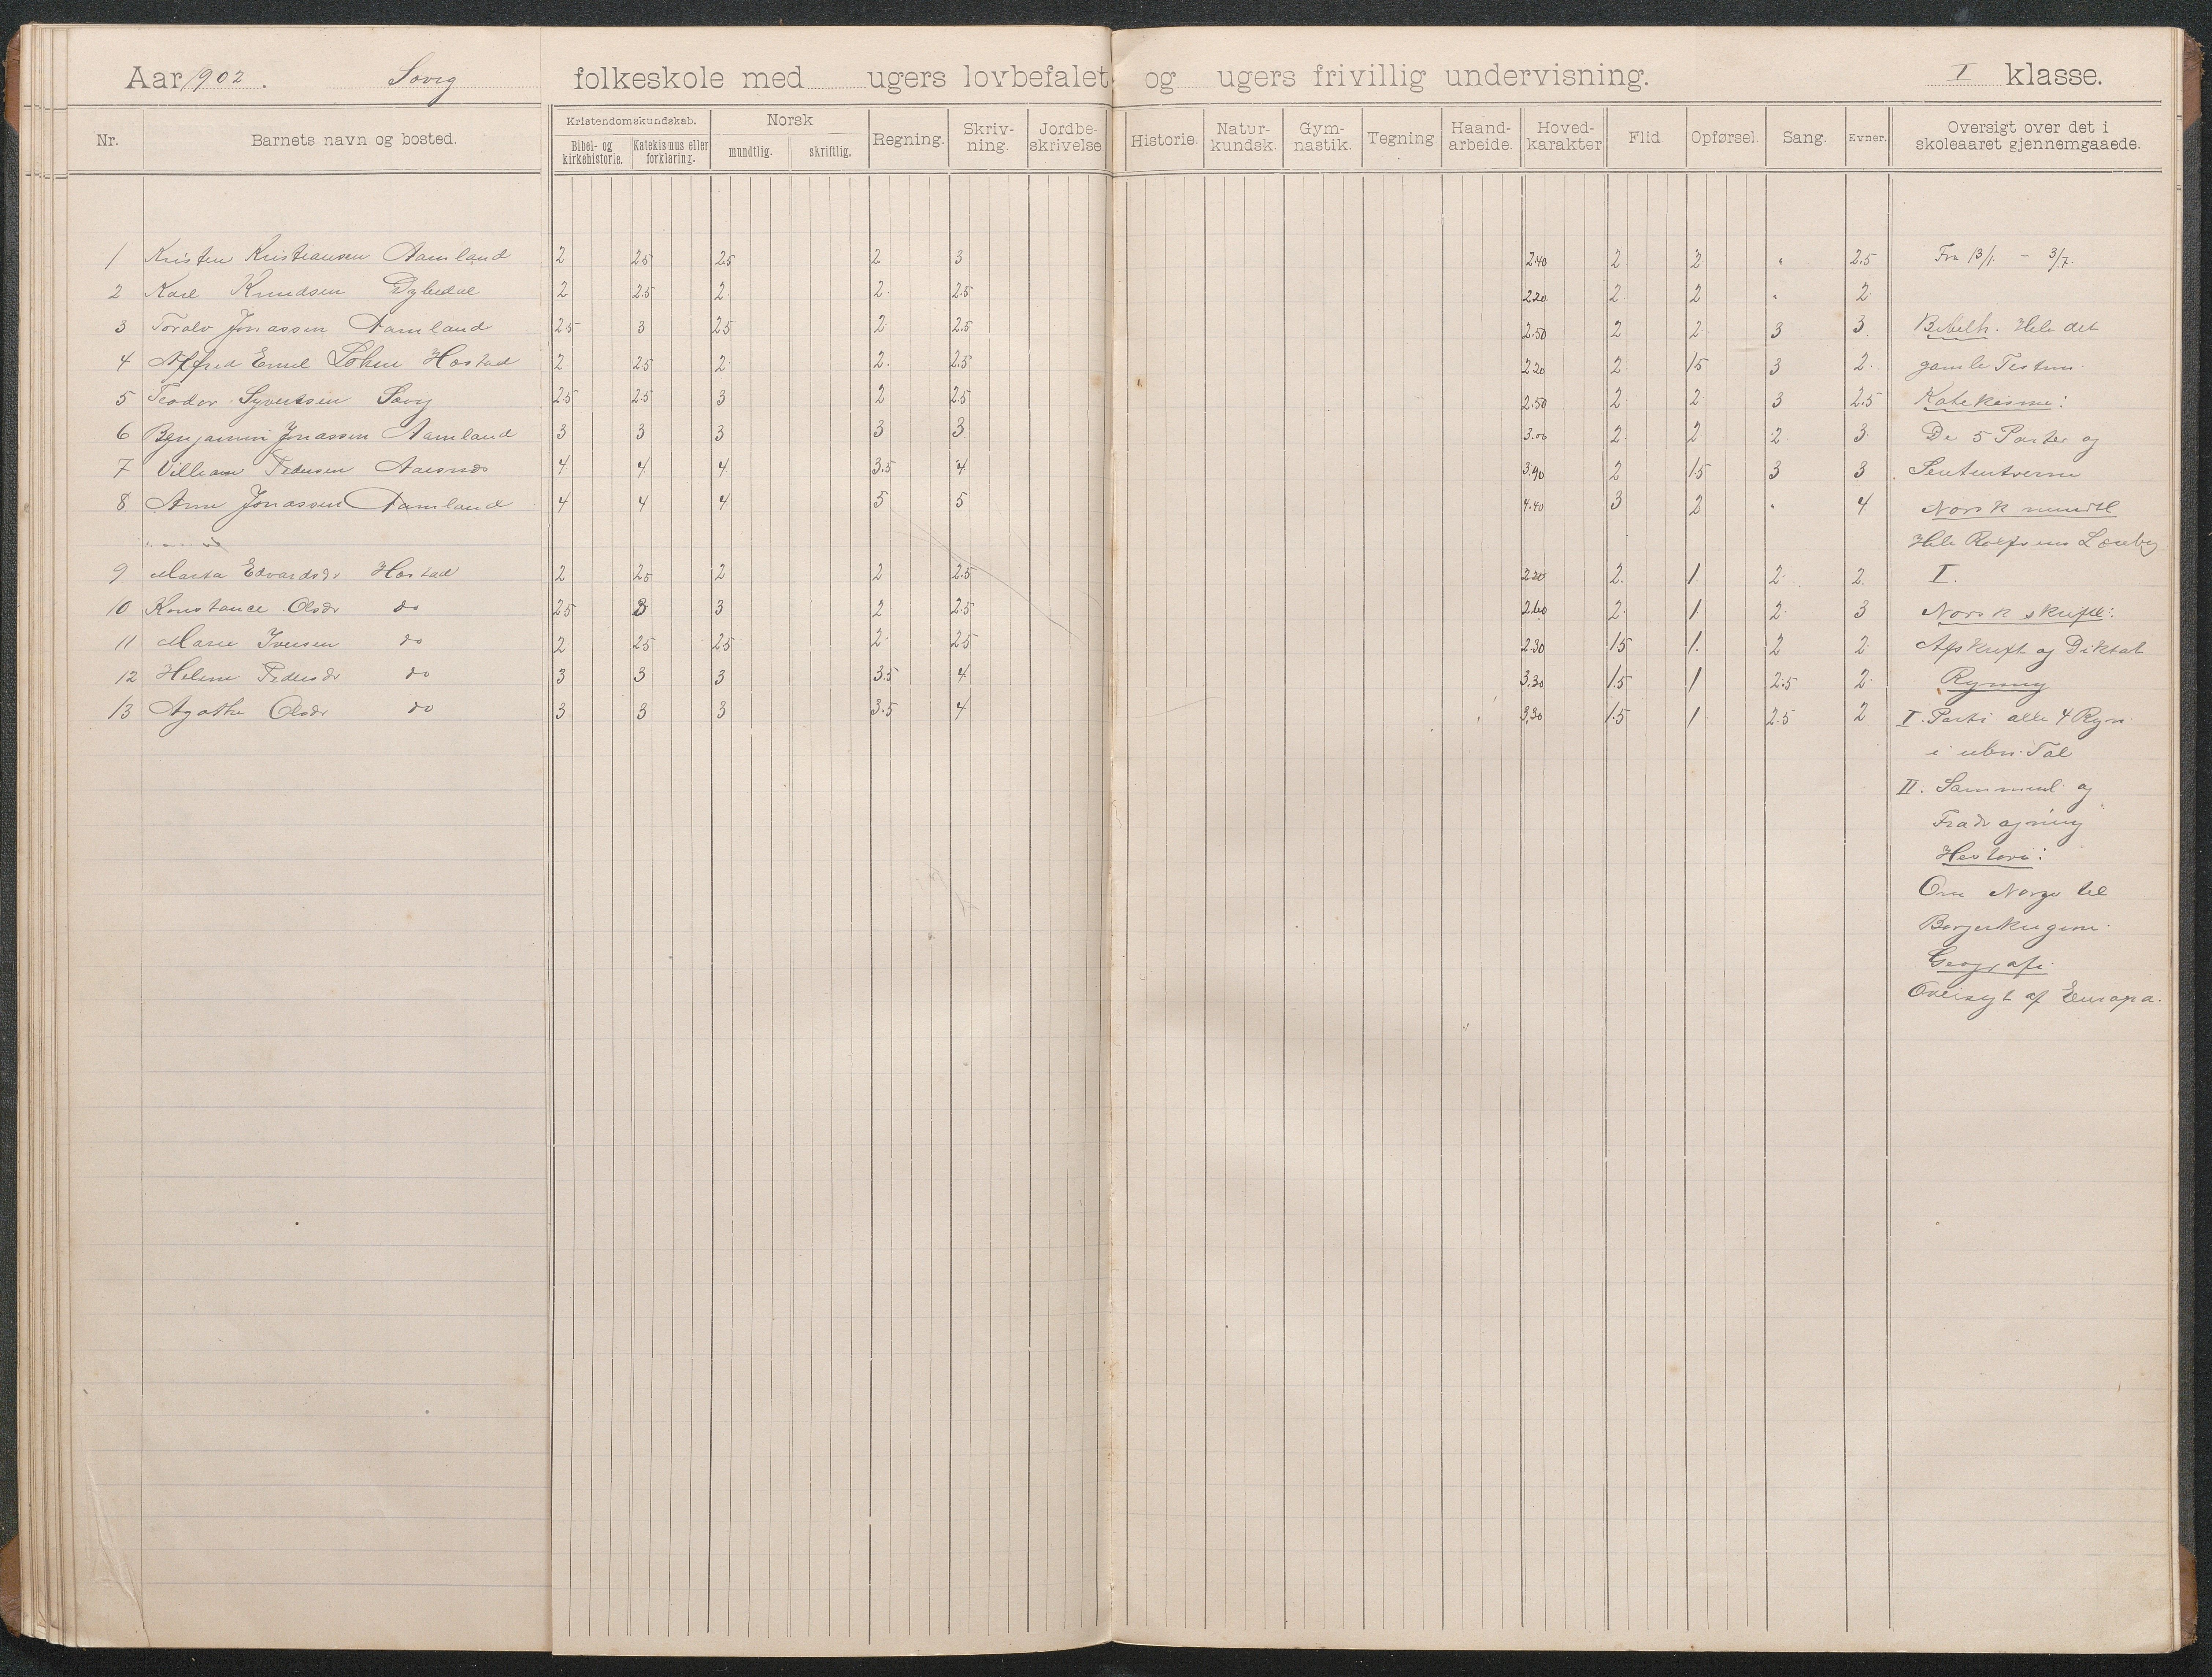 Aar 1902. Søvig folkeskole med ugers lovbefalet og ugers frivillig undervisning. I klasse.
Nr. Barnets navn og bosted. Kristendomskundskab. Bibel- og kirkehistorie. Katekismus eller forklaring. Norsk mundtlig. skriftlig. Regning. Skriv-ning. Jordbe-skrivelse. Historie. Natur-kundsk. Gym-nastik. Tegning Haand-arbeide. Hoved-karakter Flid. Opførsel. Sang. Evner. Oversigt over det i skoleaaret gjennemgaaede.
1 Kristen Kristiansen Aamland 2 25 25 2 3 2.40 2 2 " 2.5 Fra 13/1. - 3/7.
2 Karl Knudsen Dybedal 2 2.5 2 2 2.5 2.20 2 2 " 2
3 Toralv Jonassen Aamland 2.5 3 2.5 2 2.5 2.50 2 2 3 3 Bibelh. Hele det
4 Alfred Emil Hostad 2 2.5 2 2 2.5 2.20 2 1.5 3 2 gamle Testam.
5 Teodor Syvertsen Søvig 2.5 2.5 3 2 2.5 2.50 2 2 3 2.5 Katekisme:
6 Benjamin Jonassen Aamland 3 3 3 3 3 3.00 2 2 2 3 De 5 Parter og
7 Villiam Pedersen Aaesnes 4 4 4 3.5 4 3.90 2 1.5 3 3
8 Arne Jonassen Aamland 4 4 4 5 5 4.40 3 2 " 4 Norsk mundtl
Hele Rolfsens Læseby
9 Marta Edvardsdr Hostad 2 25 2 2 2.5 2.20 2 1 2 2 I.
10 Konstance Olsdr do 2.5 3 3 2 2.5 2.60 2 1 2 3 Norsk skriftl:
11 Marie Iversen do 2 2.5 2.5 2 2.5 2.30 1.5 1 2 2 Afskrift og Diktat
12 Helene Pedersdr do 3 3 3 3.5 4 3.30 1.5 1 2.5 2 Regning
13 Agathe Olsdr do 3 3 3 3.5 4 3.30 1.5 1 2.5 2 I. Parti alle 4 Regn.
i uben. Tal
II. Sammenl. og
Fradragning
Historie:
Om Norge til
Borgerkrigene.
Geografi.
Oversigt af Europa.